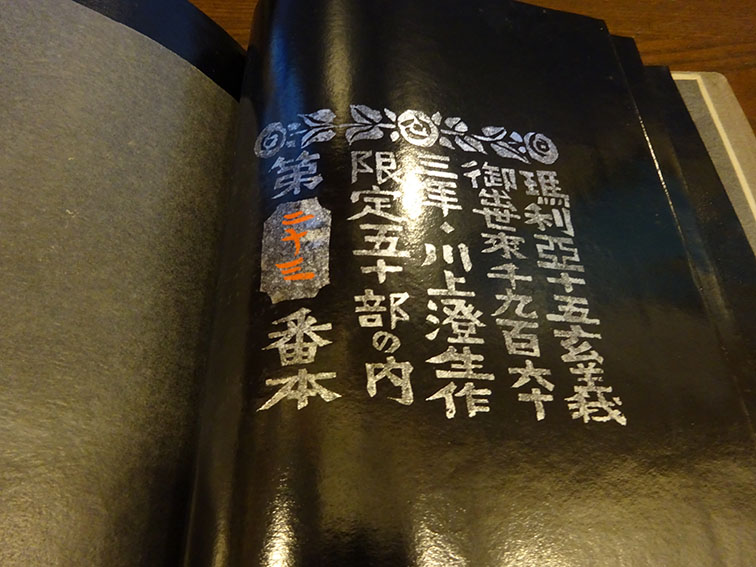 瑪利亞十五玄義
御出世来千九百六十
三年・川上澄生作
限定五十部の内
第二十三番本